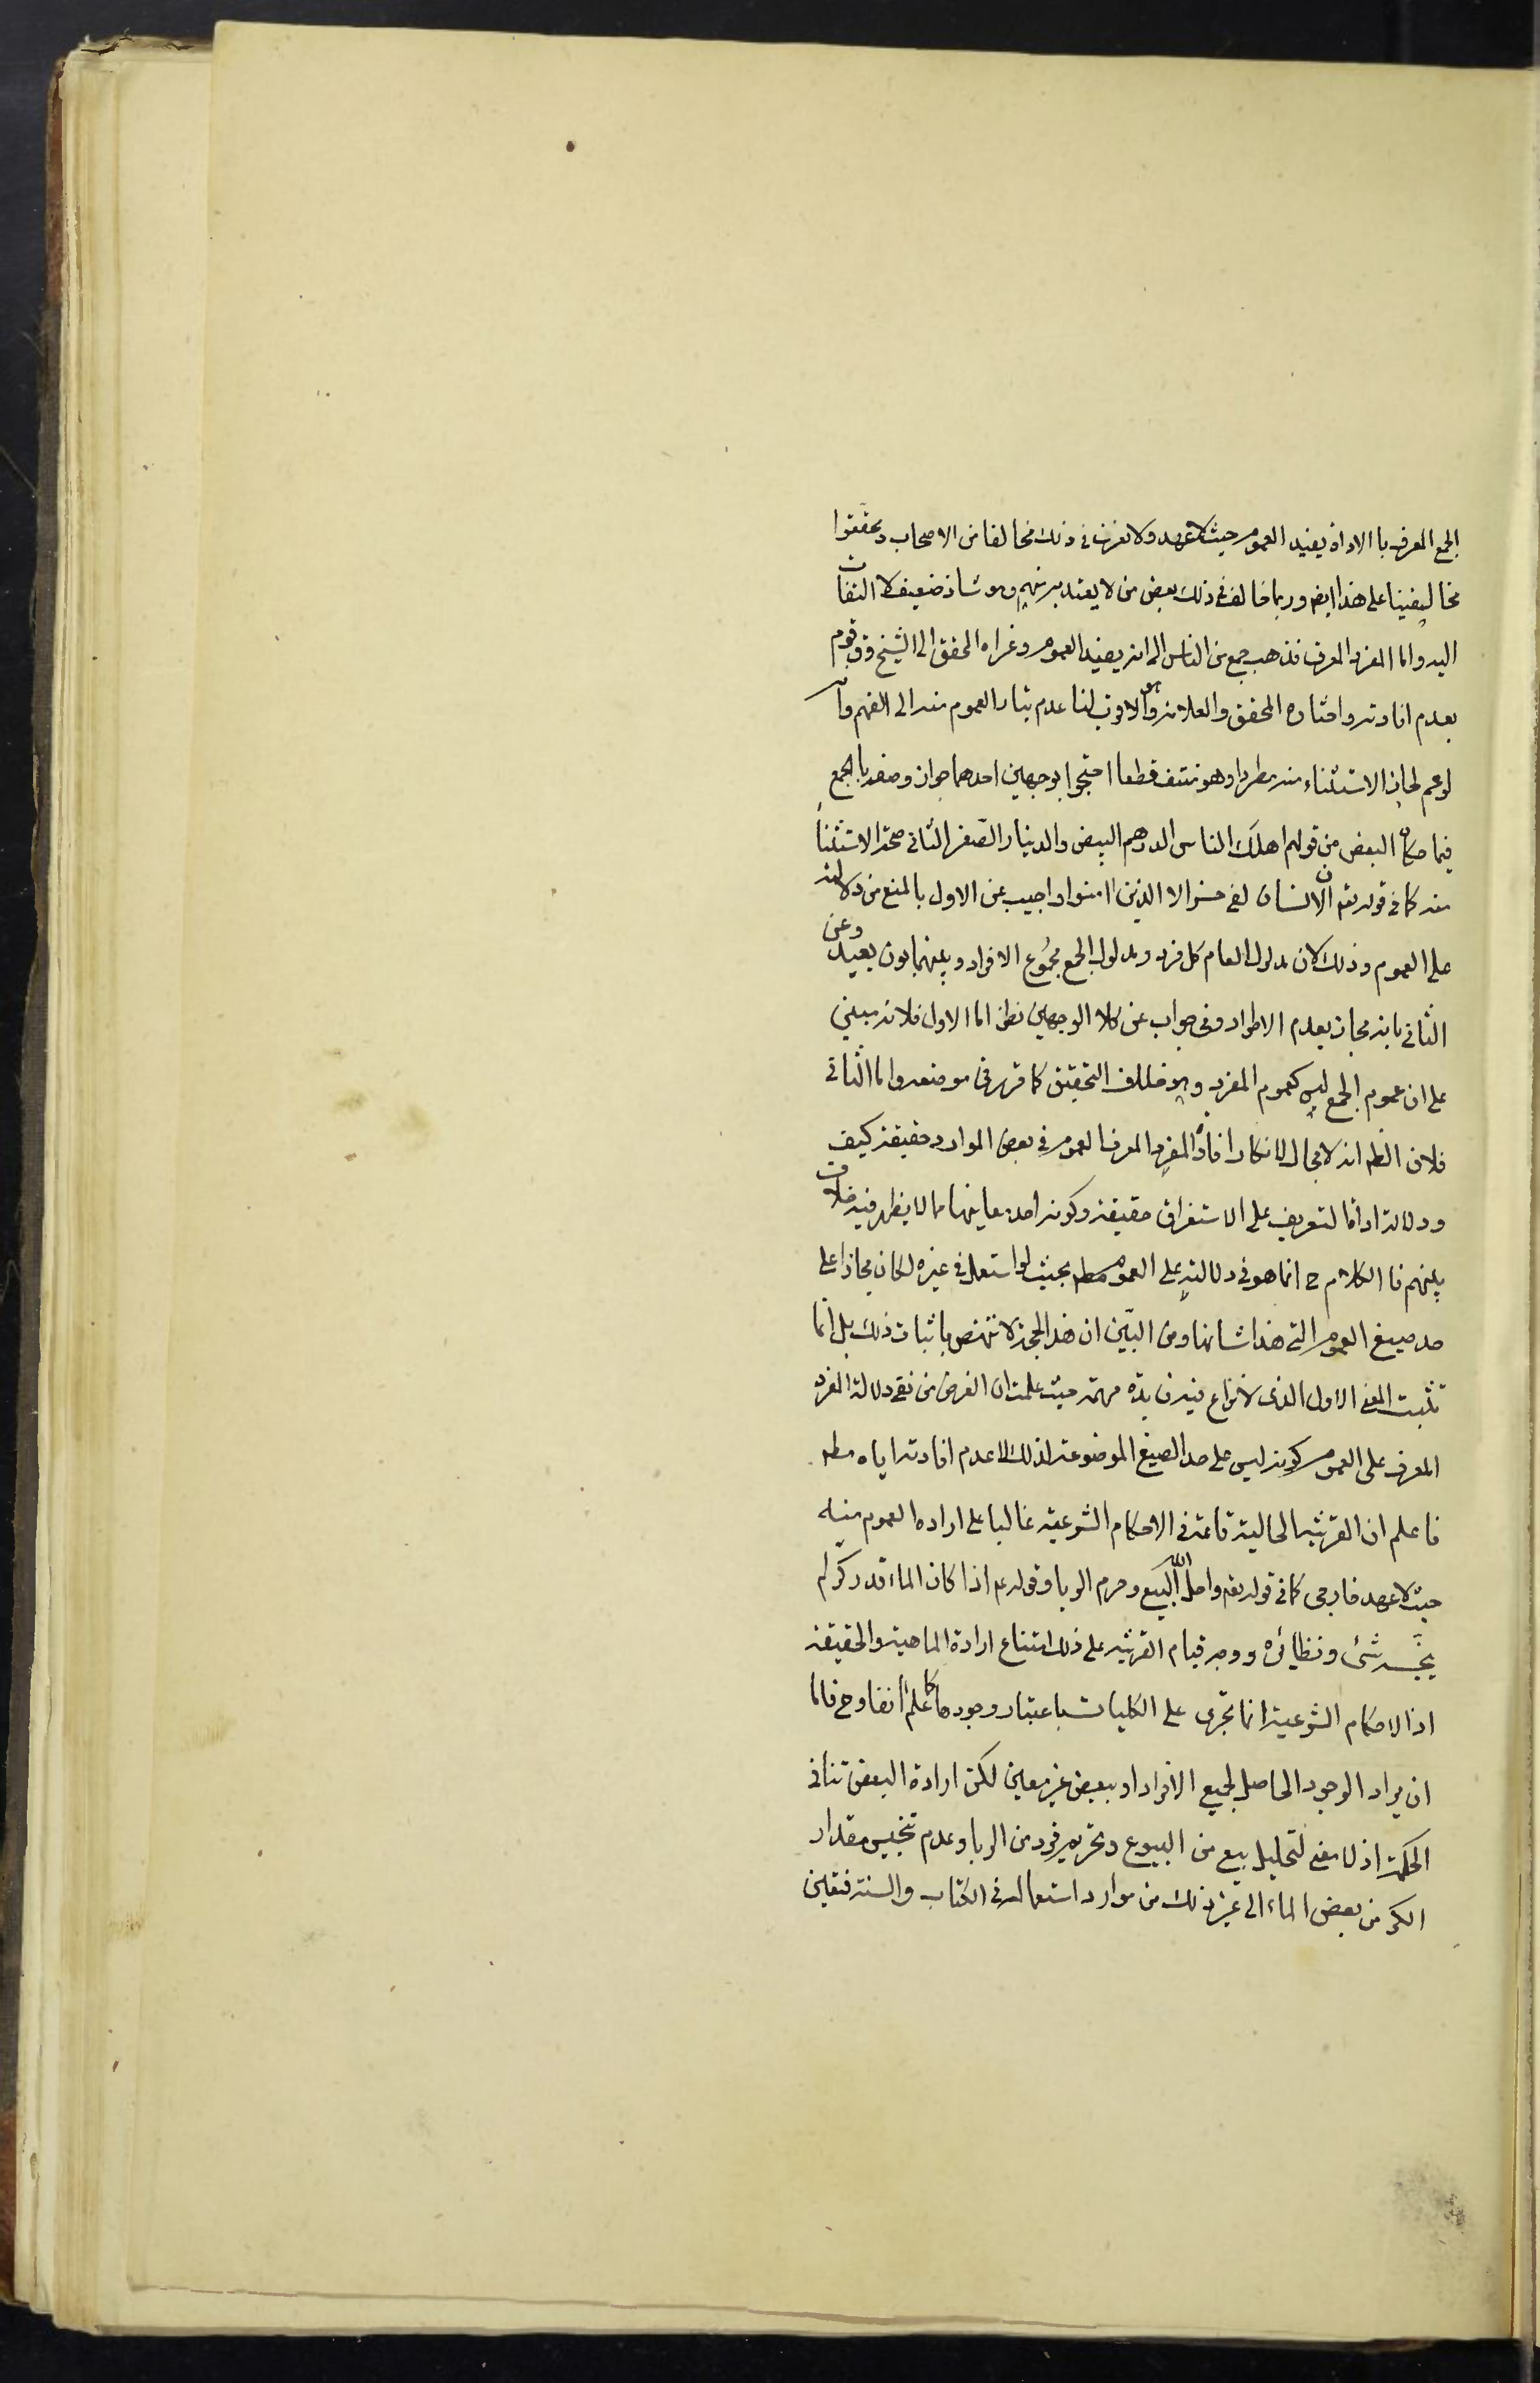 الجمع المعرف باالاداة يفيد العموم حيث لا عهد ولا نعرف في ذلك مخالفا من الاصحاب ومحققوا
مخالفينا على هذا ايض وربما خالف في ذلك بعض من لا يعتد به منهم وهو شاذ ضعيف لا التفات
اليه واما المفرد المعرف فذهب جمع من الناس الى انه يفيد العموم وعزاه المحقق الى الشيخ وق قوم
بعدم افادته واختاره المحقق والعلامة وهو الاقرب لنا عدم تبادر العموم منه الى الفهم وانه
لو عم لجاز الاستثناء منه مطردا وهو منتف قطعا احتجوا بوجهين احدهما جواز وصفه بالجمع
فيما حكاه البعض من قولهم اهلك الناس الدرهم البيض والدينار الصفر الثاني صحة الاستثناء
منه كما في قوله تعه ان الانسان لفي خسر الا الذين امنوا واجيب عن الاول بالمنع من دلالته
على العموم وذلك لان مدلول العام كل فرد ومدلول الجمع مجموع الافراد وبينهما بون بعيد وعن
الثاني بانه مجاز بعدم الاطراد وفي جواب عن كلا الوجهين نظر اما الاول فلانه مبني
على ان عموم الجمع ليس كعموم المفرد وهو خلاف التحقيق كما قرر في موضعه واما الثاني
فلان الظم انه لا مجال لانكار افادة المفرد المعرف العموم في بعض الموارد حقيقة كيف
ودلالة اداة التعريف على الاستغراق حقيقة وكونه احد معانيها مما لا يظهر فيه خلاف
بينهم فا الكلام ح انما هو في دلالته على العموم مطم بحيث لو استعمل في غيره لكان مجازا على
حد صيغ العموم التي هذا شانها ومن البيّن ان هذه الحجة لا تنهض باثبات ذلك بل انما
تثبت المعنى الاول الذي لا نزاع فيه فايدة مهمة حيث علمت ان الغرض من نفي دلالة المفرد
المعرف على العموم كونه ليس على حد الصيغ الموضوعة لذلك لا عدم افادته اياه مطم
فاعلم ان القرينة الحالية قائمة في الاحكام الشرعية غالبا على ارادة العموم منه
حيث لا عهد خارجي كما في قوله تعه واحل الله البيع وحرم الربا وقوله عم اذا كان الماء قدر كر لم
ينجّسه شئ ونظائره ووجه قيام القرينة على ذلك امتناع ارادة الماهية والحقيقة
اذ الاحكام الشرعية انما تجري على الكليات باعتبار وجودها كما علم انفا وح فاما
ان يراد الوجود الحاصل لجميع الافراد او ببعض غير معين لكن ارادة البعض تنافي
الحكمة اذ لا معنى لتحليل بيع من البيوع وتحريم فرد من الربا وعدم تنجيس مقدار
الكر من بعض الماء الى غير ذلك من موارد استعماله في الكتاب والسنة فتعين